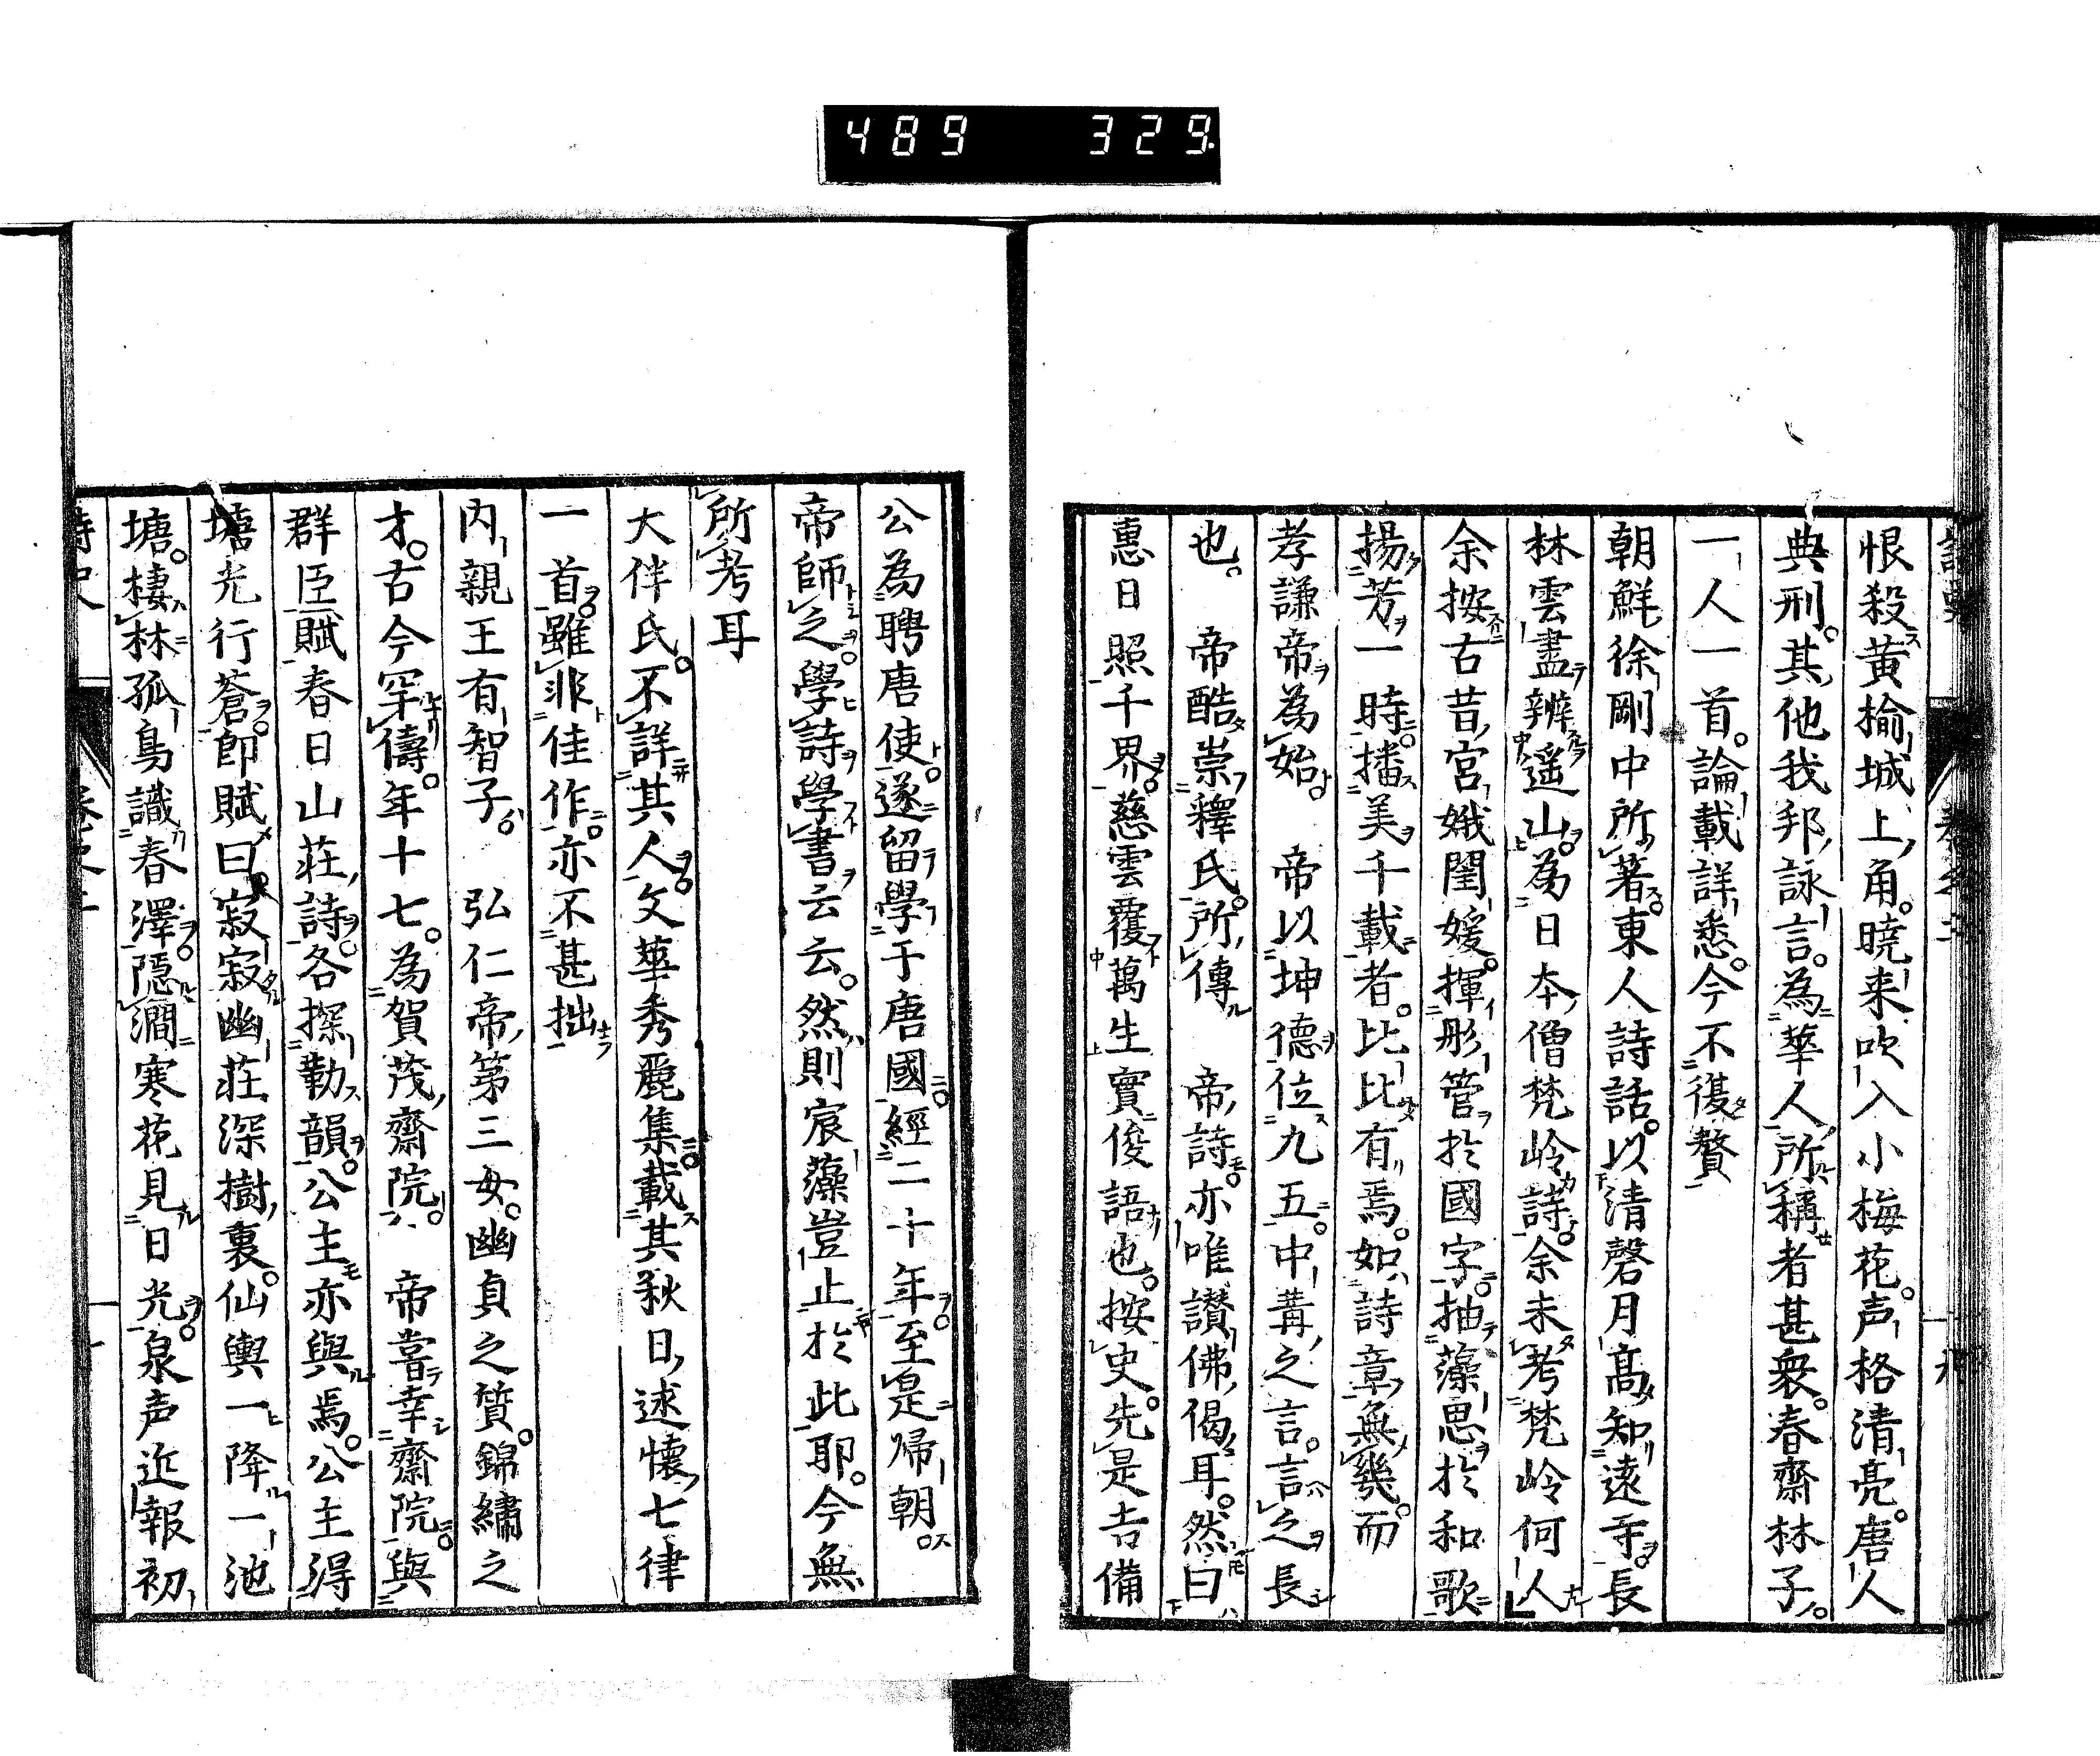 489 329
恨殺黄揄城上角。曉来吹入小梅花。声格清亮。唐人
典刑。其他我邦詠言。為華人所稱者甚衆。春齋林子。
一人一首。論載詳悉。今不復贅
朝鮮徐剛中所著東人詩話。以清磬月高知遠寺。長
林雲盡辨遥山。為日本僧梵岭詩。余未考梵岭何人
余按古昔宮娥閨媛。揮彤管於國字。抽藻思於和歌
揚芳一時。播美千載者。比比有焉。如詩章無幾。而
孝謙帝為始。　帝以坤德位九五。中冓之言。言之長
也。　帝酷崇釋氏。所傳　帝詩。亦唯讃佛偈耳。然曰
惠日照千界。慈雲覆萬生實俊語也。按史。先是吉備
公為聘唐使。遂留學于唐國。經二十年。至是帰朝。
帝師之。學詩學書云云。然則宸藻豈止於此耶。今無
所考耳
大伴氏。不詳其人。文華秀麗集。載其秋日述懷七律
一首。雖非佳作。亦不甚拙
内親王有智子。　弘仁帝第三女。幽貞之質。錦繡之
才。古今罕儔。年十七。為賀茂齋院。　帝甞幸齋院。與
群臣賦春日山莊詩。各探勒韻。公主亦與焉。公主得
塘光行蒼。即賦曰。寂寂幽莊深樹裏。仙輿一降一池
塘。棲林孤鳥識春澤。隱澗寒花見日光。泉声近報初